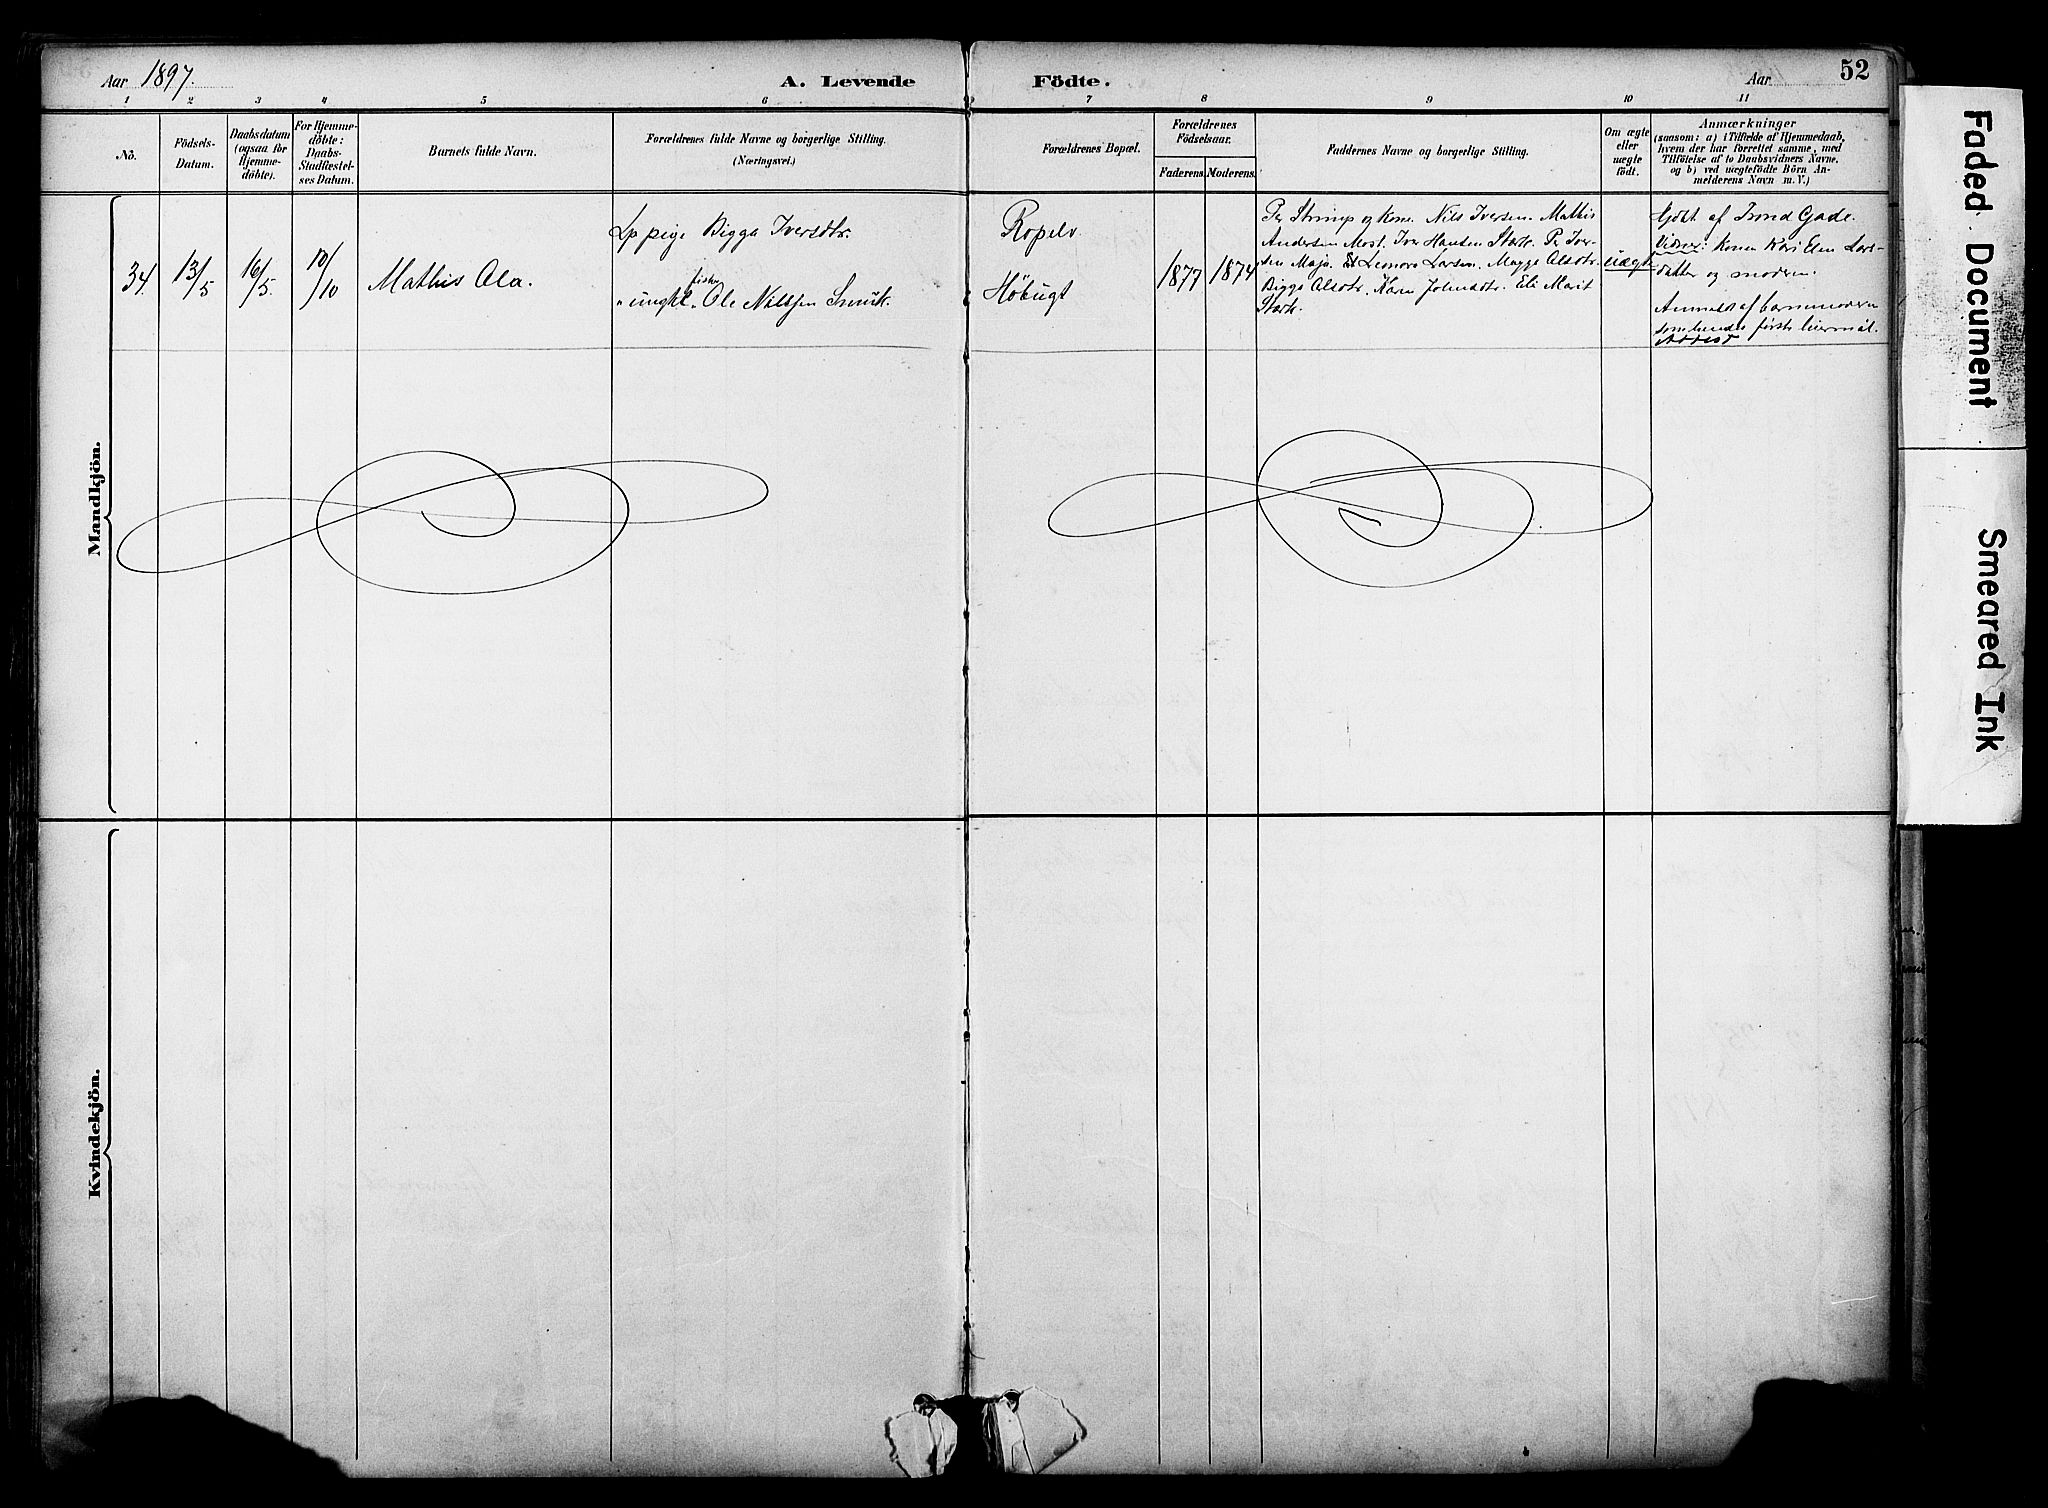 Aar 1897.
A. Levende
Födte.
Aar
52
1 2 3 4 5 6 7 8 9 10 11
No.
Födsels-
Datum.
Daabsdatum
(ogsaa for
Hjemme-
döbte).
For Hjemme-
döbte:
Daabs-
Stadfæstel-
ses Datum.
Barnets fulde Navn.
Forældrenes fulde Navne og borgerlige Stilling.
(Næringsvei.)
Forældrenes Bopæl.
Forældrenes
Födselsaar.
Faderens. Moderens.
Faddernes Navne og borgerlige Stilling.
Om ægte
eller
uægte
födt.
Anmærkninger
(saasom: a) i Tilfælde af Hjemmedaab,
hvem der har forrettet samme, med
Tilföielse af to Daabsvidners Navne,
og b) ved uægtefödte Börn An-
melderens Navn m. V.)
Mandkjön.
34.
13/5
16/5.
10/10
Mathis Ola.
Lp pige Bigga Iversdtr.
fisker
"ungkl." Ole Nilssen Smuk.
Ropelv
Höbugt
1877
1874
Per Strimp og Kone. Nils Iversen. Mathis
Andersen Most. Iver Hansen Stark. Per Iver-
sen Maja. Leonore Larsen. Magga Olsdtr.
Bigga Olsdtr. Karen Johnsdtr. Eli Marit
Stark.
uægte
Gjdbt af Trond Gade.
Vidner: Konen Kari Elen Lars-
datter og modern.
Anmeldt af barnemodern
som hendes förste leiermål.
Attest
Kvindekjön.
Faded Document
Smeared Ink